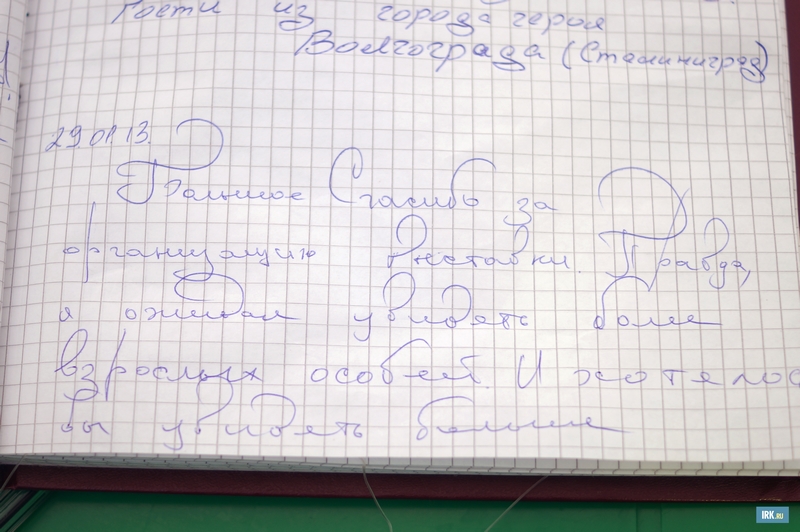 Гости из города героя
Волгограда (Сталинград)
29.01.13.
Спасибо за
организацию выставки. Правда,
я ожидал увидеть более
взрослых особей. И хотелос
бы увидеть больше
IRK.RU